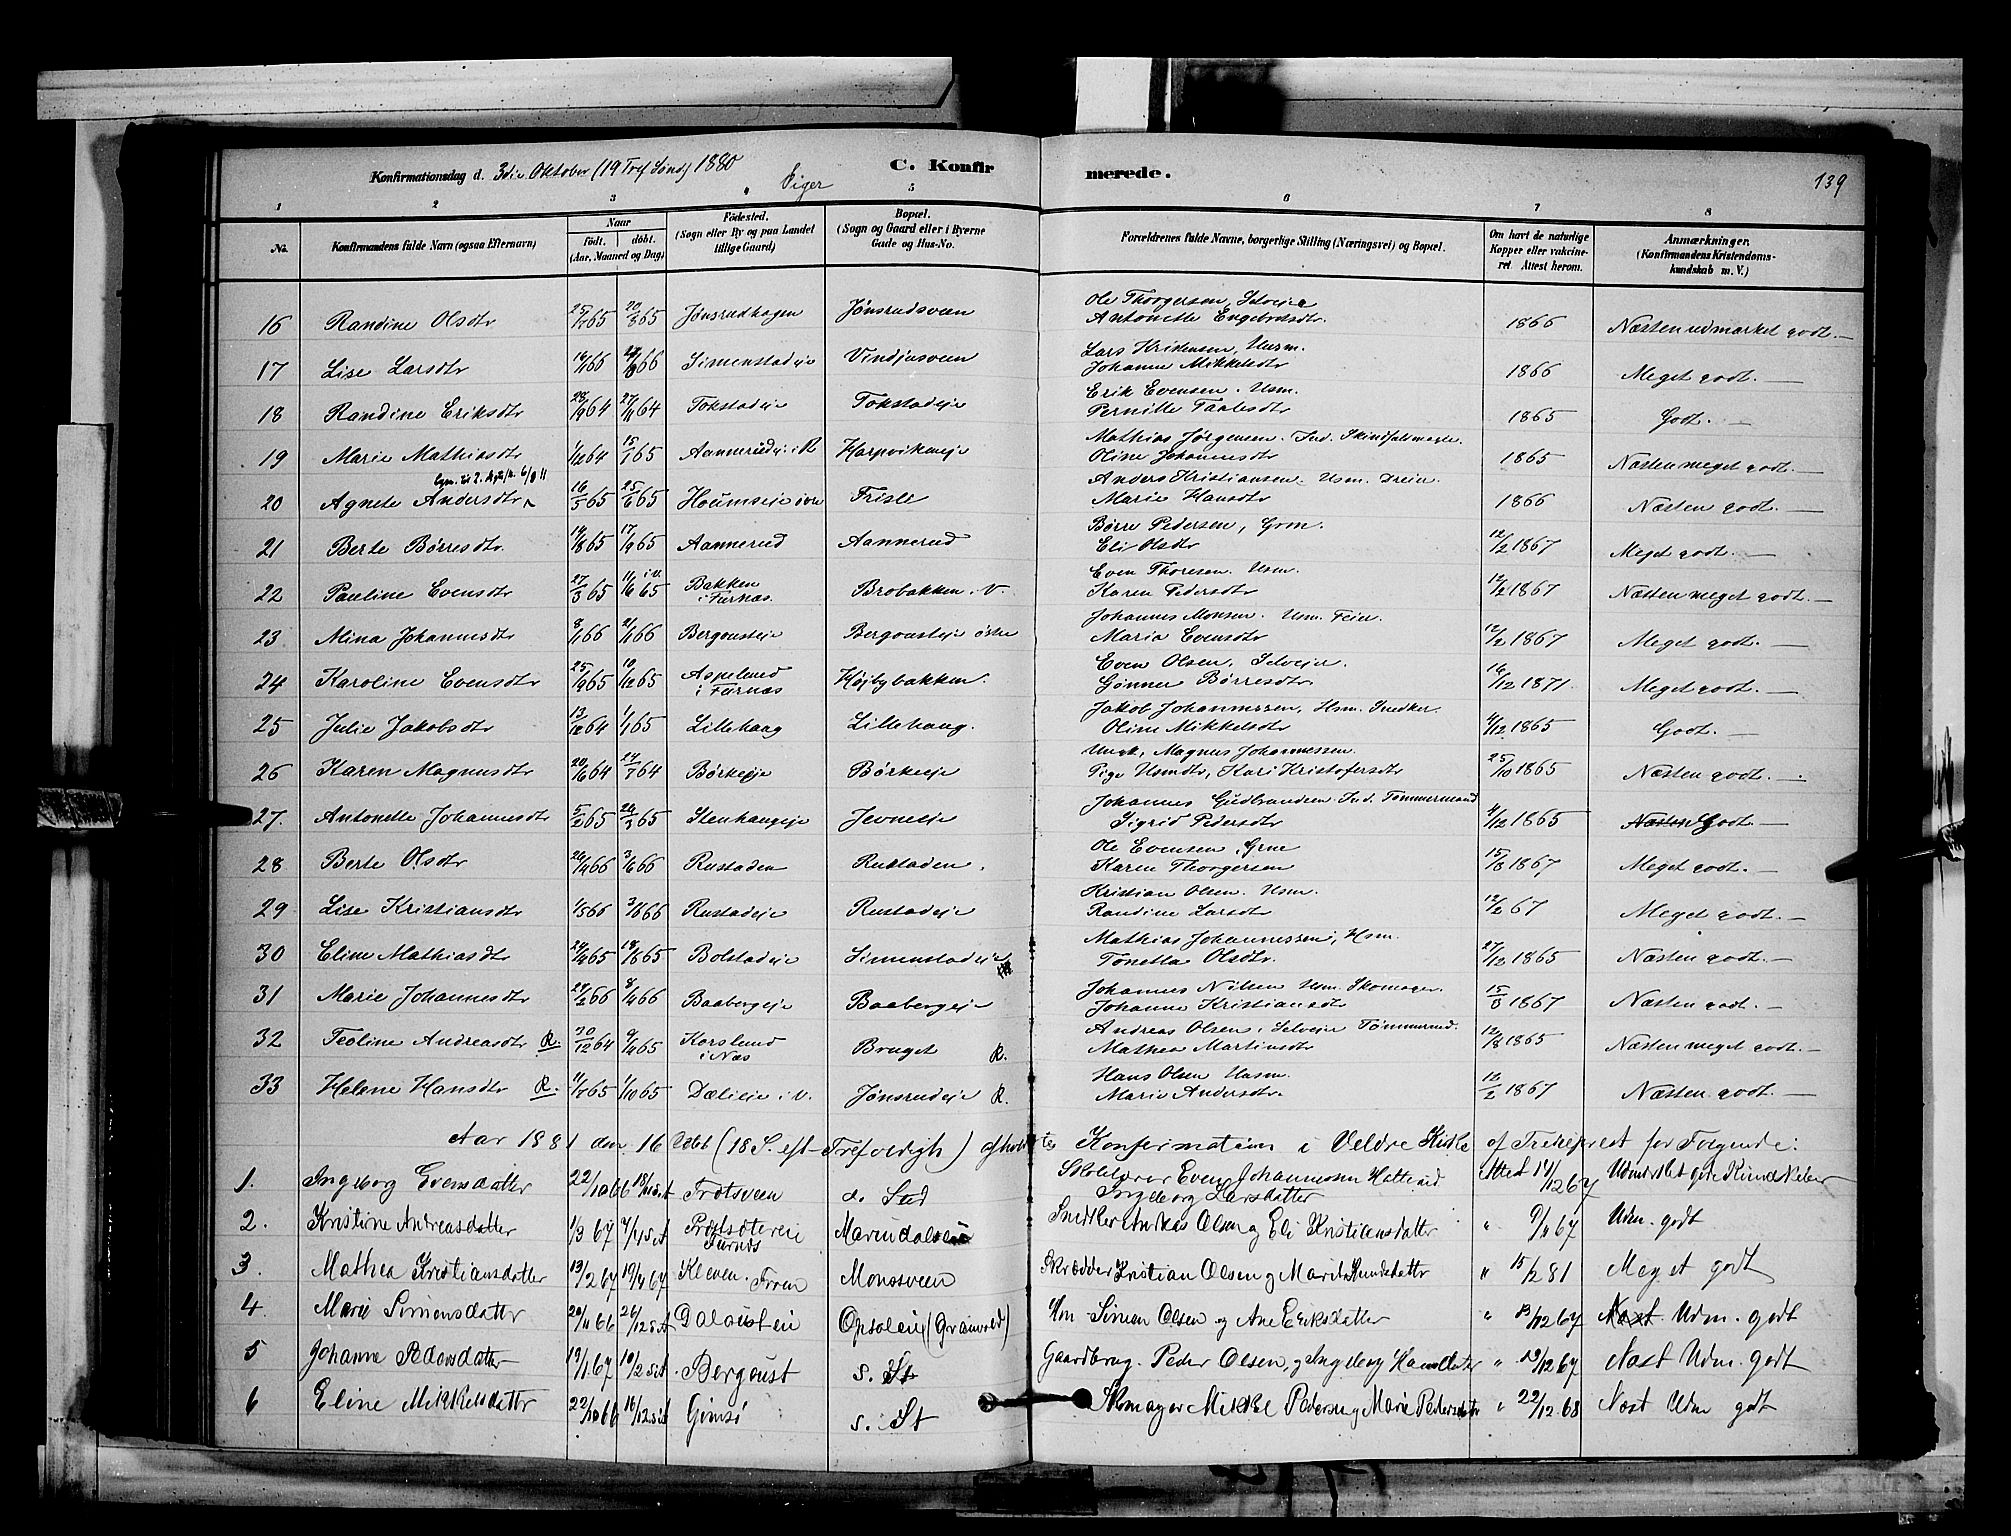 Konfirmationsdag d. 3die Oktober (19 Tref Sönd) 1880 Piger C. Konfir merede. 139
1 2 3 4 5 6 7 8
No. Konfirmandens fulde Navn (ogsaa Efternavn) Naar født. døbt. (Aar, Maaned og Dag) Fødested. (Sogn eller By og paa Landet tillige Gaard) Bopæl. (Sogn og Gaard eller i Byerne Gade og Hus-No. Forældrenes fulde Navne, borgerlige Stilling (Næringsvei) og Bopæl. Om havt de naturlige Kopper eller vakcineret. Attest herom. Anmærkninger. (Konfirmandens Kristendomskundskab m. V.)
16 Randine Olsdtr 25/7 65 20/8 65 Jönsrudhagen Jönsrudsveen Ole Thorgersen, Selveje Antonette Engebretsdtr. 1866 Næsten udmærket godt.
17 Lise Larsdtr 66 66 Simenstadeje Vindjusveen Lars Kristensen, Husm. Johanne Mikkelsdtr 1866 Meget godt.
18 Randine Eriksdtr 28/9 64 27/11 64 Tokstadeje Tokstadeje Erik Evensen. Husm. Pernille Paalsdtr 1865 Godt.
19 Marie Mathiasdtr 1/12 64 15/1 65 Aannerudeje i R Harpvikeneje Mathias Jörgensen. Ind. Skindfældmager. Oline Johannesdtr 1865 Næsten meget godt.
20 Agnete Andersdtr 16/5 65 25/6 65 Houmseje övre Frisle Anders Kristiansen. Husm. Dreier. Marie Hansdtr 1866 Næsten godt.
21 Berte Börresdtr 14/8 65 17/9 65 Aannerud Aannerud Börre Pedersen, Grm. Eli Olsdtr 12/2 1867 Meget godt.
22 Pauline Evensdtr 27/3 65 11/6 65 i V. Bakken i Furnæs Brobakken. V. Even Thoresen. Husm. Karen Pedersdtr 12/2 1867 Næsten meget godt.
23 Mina Johannesdtr 8/1 66 21/1 66 Bergousteje Bergousteje östre Johannes Monsen. Husm. Feier. Maria Evensdtr 12/2 1867 Meget godt.
24 Karoline Evensdtr 25/9 65 10/12 65 Aspelund i Furnæs Höjbybakken. Even Olsen, Selvejer. Gönner Börresdtr. 16/12 1871. Meget godt.
25 Julie Jakobsdtr 13/12 64 1/1 65 Lillehaag Lillehaug. Jakob Johannessen, Husm. Snedker. Oline Mikkelsdtr 4/12 1865 Godt.
26 Karen Magnusdtr 20/6 64 24/7 64 Börkeeje Börkeeje Ungk. Magnus Johannessen. Pige Husmdtr, Kari Kristofersdtr 25/10 1865 Næsten godt.
27. Antonette Johannesdtr 5/2 65 26/3 65 Stenhaugeje Jevneeje Johannes Gudbrandsen. Ind. Tömmermand Sigrid Pedersdtr 4/12 1865 Næsten Godt.
28 Berte Olsdtr 26/4 66 3/6 66 Rustaden Rustaden. Ole Evensen, Grm Karen Thorgersen 15/8 1867 Meget godt.
29 Lise Kristiansdtr 1/5 66 3/6 66 Rustadeje Rustadeje Kristian Olsen. Husm. Randine Larsdtr 12/2 67 Meget godt.
30 Eline Mathiasdtr 65 65 Bolstadeje Simenstadeje Mathias Johannessen, Husm. Tonetta Olsdtr. 27/12 1865 Næsten godt.
31 Marie Johannesdtr 24/2 66 8/4 66 Baabergeje Baabergeje Johannes Nilsen Husm. Skomager. Johanne Kristiansdtr 15/8 1867 Næsten godt.
32 Teoline Andreasdtr R. 30/12 64 9/4 65 Korslund i Næs Bruget R. Andreas Olsen, Selvejer Tömmermd. Mathea Martinsdtr 12/8 1865 Næsten meget godt.
33 Helene Hansdtr R. 11/7 65 1/10 65 Dæhlieje i V. Jönsrudeje R. Hans Olsen Husm. Marie Andersdtr. 12/2 1867 Næsten godt.
Aar 1881 den 16 Octbr (18 S. eft. Trefoldigh) afholdtes Konfirmation i Veldre Kirke af Sognepræst for Følgende:
1. Ingeborg Evensdatter 22/10 66 Frötsveen d. Sted Skolelærer Even Johannessen Ingeborg Larsdatter Attest 14/12 67 Udmærket gode Kundskaber
2. Kristine Andreasdatter 1/3 67 Furnæs Snedker Andreas Olsen og Eli Kristiansdatter " 67 Udm. godt
3. Mathea Kristiansdatter 13/2 67 19/4 67 Kleven. Fron Monssveen Skrædder Kristian Olsen og Marit " 15/2 81 Meget godt
4. Marie Simensdatter 20/11 66 26/12 s.A Dalousteie Opsaleie (Grönvold) Hm Simen Olsen og Ane Eriksdatter " 13/12 67 Næst Udm. godt
5 Johanne Pedersdatter 19/1 67 10/2 s.A Bergoust s. St Gaardbrug. Peder Olsen, og Ingeborg Hansdatter " 19/12 67 Næst Udm. godt
6 Eline Mikkelsdatter 22/10 66 16/12 s.A Gimsö s. St Skomager Mikkel Pedersen og Marie Pedersdatter " 22/12 68 Næst Udm godt